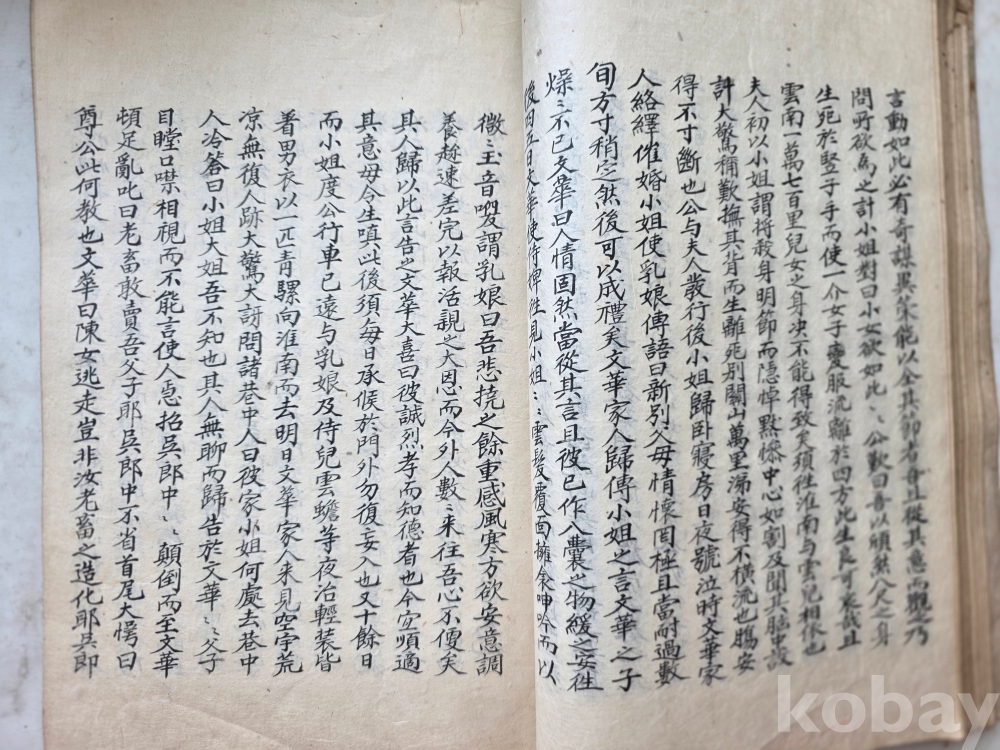 言動如此必有奇謀異策能以全其節者耶且從其意而觀之乃
問所欲爲之計小姐對曰小女欲如此〻公歎曰吾以頎然八尺之身
生死於竪子手而使一介女子變服流離於四方此生良可哀哉且
雲南一萬七百里兒女之身决不能得致矣須徃淮南与雲兒相依也
夫人初以小姐謂將殺身明節而隱悼默慘中心如割及聞其
計大驚稱歎撫其背而生離死别關山萬里涕安得不橫流也膓安
得不寸斷也公与夫人發行後小姐歸卧寢房日夜號泣時文華家
人絡繹催婚小姐使乳娘傳語曰新別父母情懷罔極且當耐過數
旬方寸稍定然後可以成禮矣文華家人歸傳小姐之言文華之子
燥〻不已文華曰人情固然當從其言且彼已作入囊之物緩之安徃
後四五日文華使侍婢徃見小姐〻雲髮覆面擁衾呻吟而以
微〻玉音嚶謂乳娘曰吾悲撓之餘重感風寒方欲安意調
養趂速差完以報活親之大恩而今外人數〻来徃吾心不便矣
其人歸以此言告之文華大喜曰彼誠烈孝而知德者也今宜順適
其意毋令生嗔此後須每日承候於門外勿復妄入也又十餘日
而小姐度公行車已遠与乳娘及侍兒雲蟾等夜治輕装皆
着男衣以一匹青騾向淮南而去明日文華家人来見空宇荒
凉無復人跡大驚大訝問諸巷中人曰彼家小姐何處去巷中
人冷答曰小姐大姐吾不知也其人無聊而歸告於文華〻父子
目瞠口噤相視而不能言使人急招吳郎中〻顛倒而至文華
頓足亂叱曰老畜敢賣吾父子耶吳郎中不省首尾大愕曰
尊公此何敎也文華曰陳女逃走豈非汝老畜之造化耶吳郎
kobay